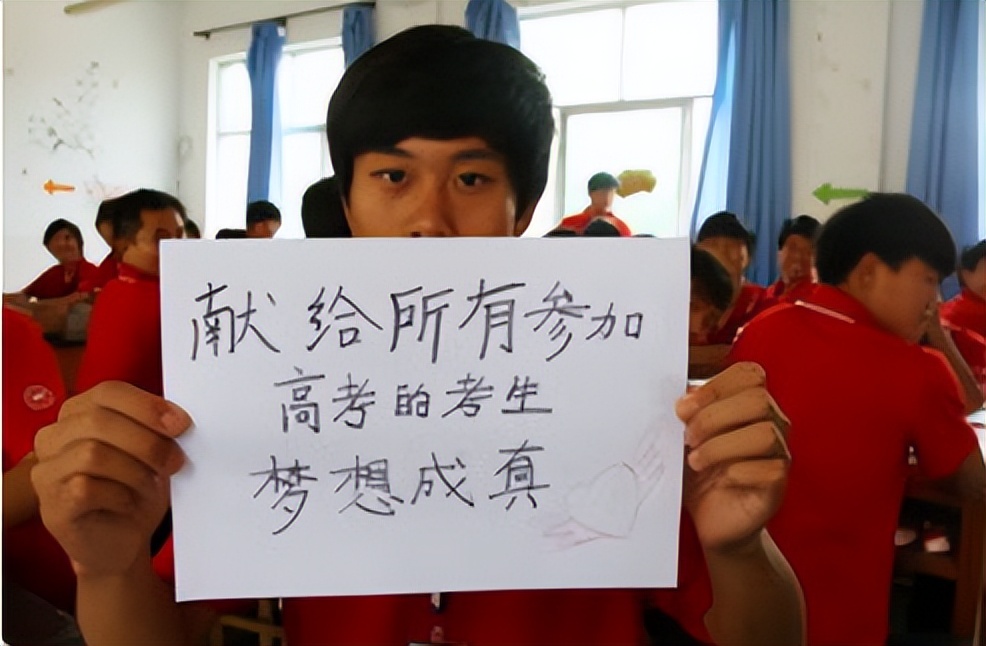 献给所有参加
高考的考生
梦想成真